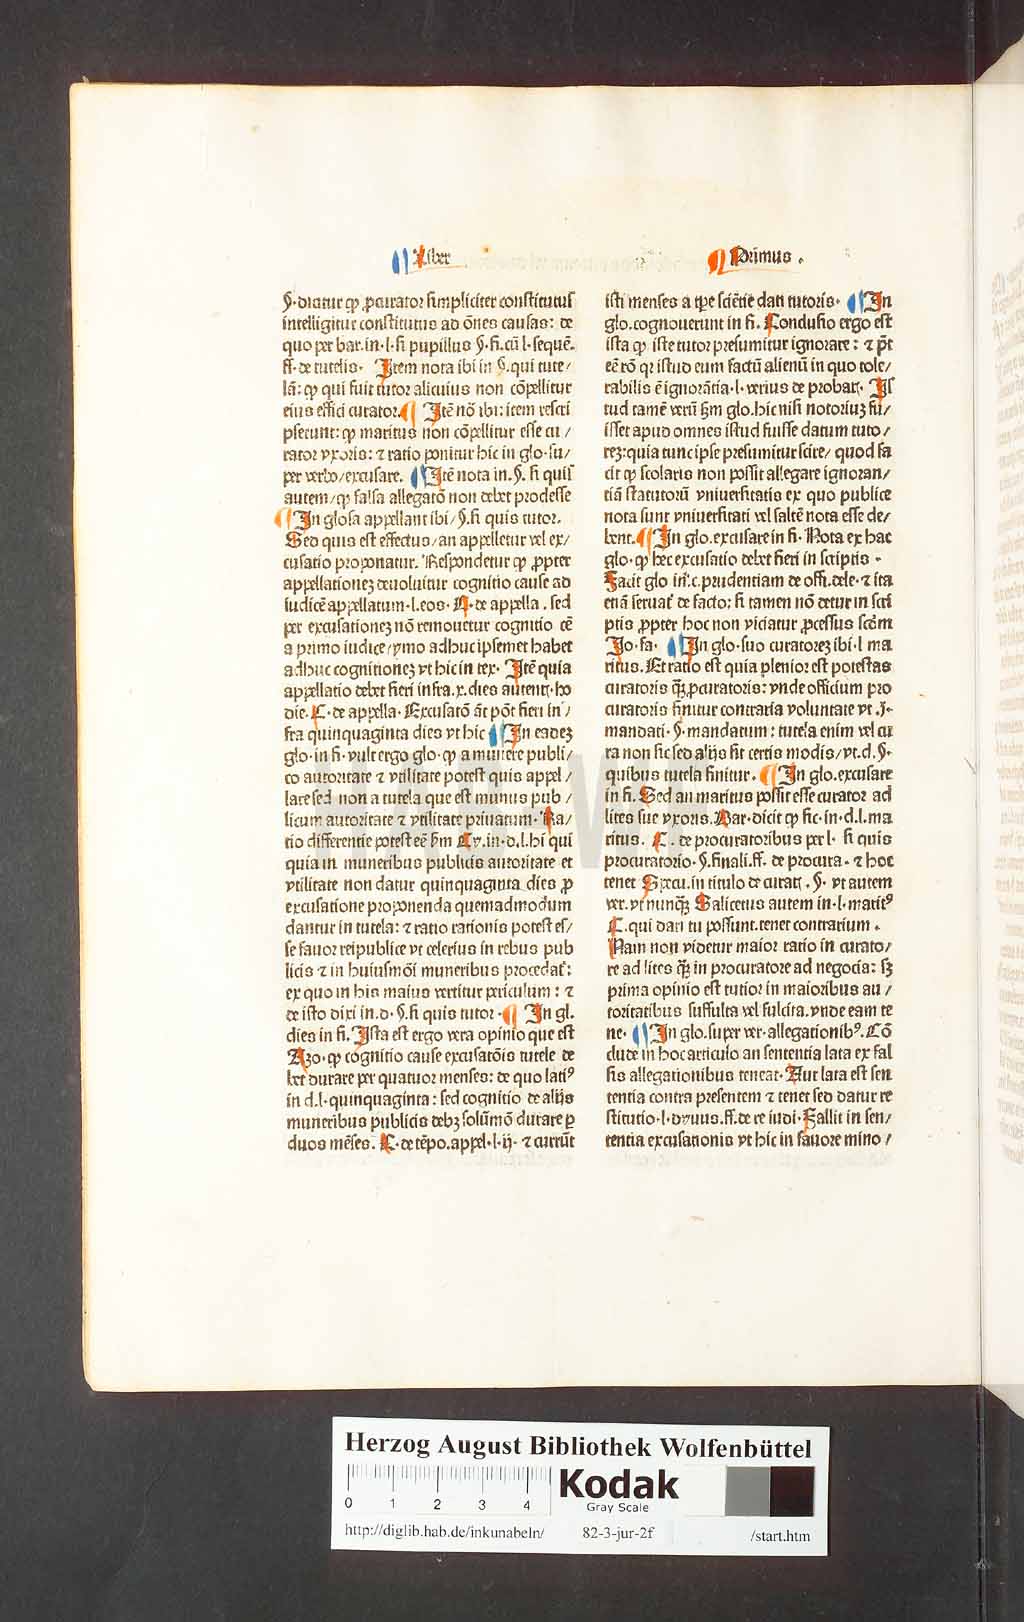 Liber
Primus.
§. dicitur ꝙ ꝓcurator simpliciter constitutus
intelligitur constitutus ad oēs causas: de
quo per bar. in. l. si pupillus §. si. cū l. sequē.
ff. de tutelis. Item nota ibi in §. qui tute/
lā: ꝙ qui fuit tutor alicuius non cōpellitur
eius effici curator. ¶ Itē nō ibi: item rescri
pserunt: ꝙ maritus non cōpellitur esse cu/
rator vxoris: ⁊ ratio ponitur hic in glo. su/
per verbo/excusare. ¶ Itē nota in. §. si quis
autem/ꝙ falsa allegatō non debet prodesse
¶ In glosa appellant ibi/§. si quis tutor.
Sed quis est effectus/an appelletur vel ex/
cusatio proponatur. Respondetur ꝙ ꝓpter
appellationeꝫ deuoluitur cognitio cause ad
iudicē appellatum. l. eos. ff. de appella. sed
per excusationeꝫ nō remouetur cognitio cē
a primo iudice/ymo adhuc ipsemet habet
adhuc cognitioneꝫ vt hic in tex. Itē quia
appellatio debet fieri infra. x. dies autent. ho
die. C. de appella. Excusatō āt pōt fieri in/
fra quinquaginta dies vt hic ¶ In eadeꝫ
glo. in fi. vult ergo glo. ꝙ a munere publi/
co autoritate ⁊ vtilitate potest quis appel/
lare sed non a tutela que est munus pub/
licum autoritate ⁊ vtilitate priuatum. Ra/
tio differentie potest eē bm Ay. in. d. l. hi qui
quia in muneribus publicis autoritate et
vtilitate non datur quinquaginta dies ꝓ
excusatione proponenda quemadmodum
dantur in tutela: ⁊ ratio rationis potest es/
se fauor reipublice vt celerius in rebus pub
licis ⁊ in huiusmōi muneribus procedat᷑:
ex quo in his maius vertitur periculum: ⁊
de isto dixi in. d. §. si quis tutor. ¶ In gl.
dies in fi. Ista est ergo vera opinio que est
Azo. ꝙ cognitio cause excusatōis tutele de
bet durare per quatuor menses: de quo latiꝰ
in d. l. quinquaginta: sed cognitio de alijs
muneribus publicis debꝫ solūmō durare ꝑ
duos mēses. C. de tēpo. appel. l. ij. ⁊ currūt
isti menses a tꝑe sciētie dati tutoris. ¶ In
glo. cognouerunt in fi. Conclusio ergo est
ista ꝙ iste tutor presumitur ignorare: ⁊ pōt
eē rō qr istud eum factū alienū in quo tole/
rabilis ē ignorātia. l. verius de probat. Is
tud tamē verū ẜm glo. hic nisi notoriuꝫ fu/
isset apud omnes istud fuisse datum tuto/
reꝫ: quia tunc ipse presumitur scire/ quod fa
cit ꝙ scolaris non possit allegare ignoran/
tiā statutorū vniuersitatis ex quo publice
nota sunt vniuersitati vel saltē nota esse de/
bent. ¶ In glo. excusare in fi. Nota ex hac
glo. ꝙ hec excusatio debet fieri in scriptis.
Facit glo in. c. prudentiam de offi. dele. ⁊ ita
etiā seruat᷑ de facto: si tamen nō detur in scri
ptis ꝓpter hoc non viciatur ꝓcessus scdm
Jo. fa. ¶ In glo. suo curatoreꝫ ibi. l ma
ritus. Et ratio est quia plenior est potestas
curatoris qꝫ ꝓcuratoris: vnde officium pro
curatoris finitur contraria voluntate vt. J.
mandati. §. mandatum: tutela enim vel cu
ra non sic sed alijs sit certis modis/vt. d. §.
quibus tutela finitur. ¶ In glo. excusare
in fi. Sed an maritus possit esse curator ad
lites sue vxoris. Bar. dicit ꝙ sic. in. d. l. ma
ritus. C. de procuratoribus per l. si quis
procuratorio. §. finali. ff. de procura. ⁊ hoc
tenet Specu. in titulo de curat. §. vt autem
ver. vt nunqꝫ Salicetus autem in. l. maritꝰ
C. qui dari tu possunt. tenet contrarium.
Nam non videtur maior ratio in curato/
re ad lites qꝫ in procuratore ad negocia: sꝫ
prima opinio est tutior in maioribus au/
toritatibus suffulta vel fulcita. vnde eam te
ne. ¶ In glo. super ver. allegationibꝰ. Cō
clude in hoc articulo an sententia lata ex fal
sis allegationibus teneat. Aut lata est sen
tentia contra presentem ⁊ tenet sed datur re
stitutio. l. diuus. ff. de re iudi. Fallit in sen/
tentia excusationis vt hic in fauore mino/
Herzog August Bibliothek Wolfenbüttel
0 1 2 3 4
Kodak
Gray Scale
http://diglib.hab.de/inkunabeln/ 82-3-jur-2f /start.htm
HAB-WF